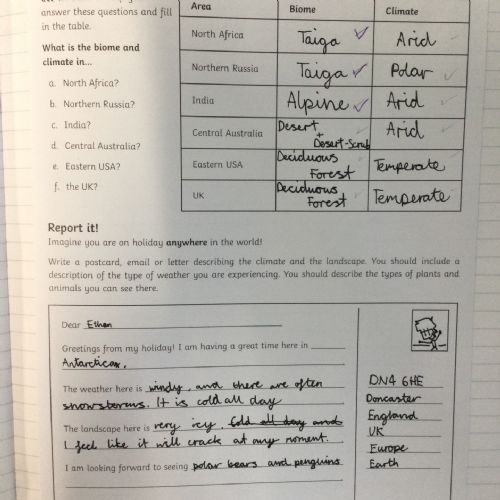 answer these questions and fill
in the table.
What is the biome and
climate in...
a. North Africa?
b. Northern Russia?
c. India?
d. Central Australia?
e. Eastern USA?
f. the UK?
Area Biome Climate
North Africa Taiga Arid
Northern Russia Taiga Polar
India Alpine Arid
Central Australia Desert + Desert-Scrub Arid
Eastern USA Deciduous Forest Temperate
UK Deciduous Forest Temperate
Report it!
Imagine you are on holiday anywhere in the world!
Write a postcard, email or letter describing the climate and the landscape. You should include a
description of the type of weather you are experiencing. You should describe the types of plants and
animals you can see there.
Dear Ethan
Greetings from my holiday! I am having a great time here in
Antarctica.
The weather here is windy, and there are often
snowstorms. It is cold all day
The landscape here is very icy. Cold all day and
I feel like it will crack at any moment.
I am looking forward to seeing polar bears and penguins
DN4 6HE
Doncaster
England
UK
Europe
Earth